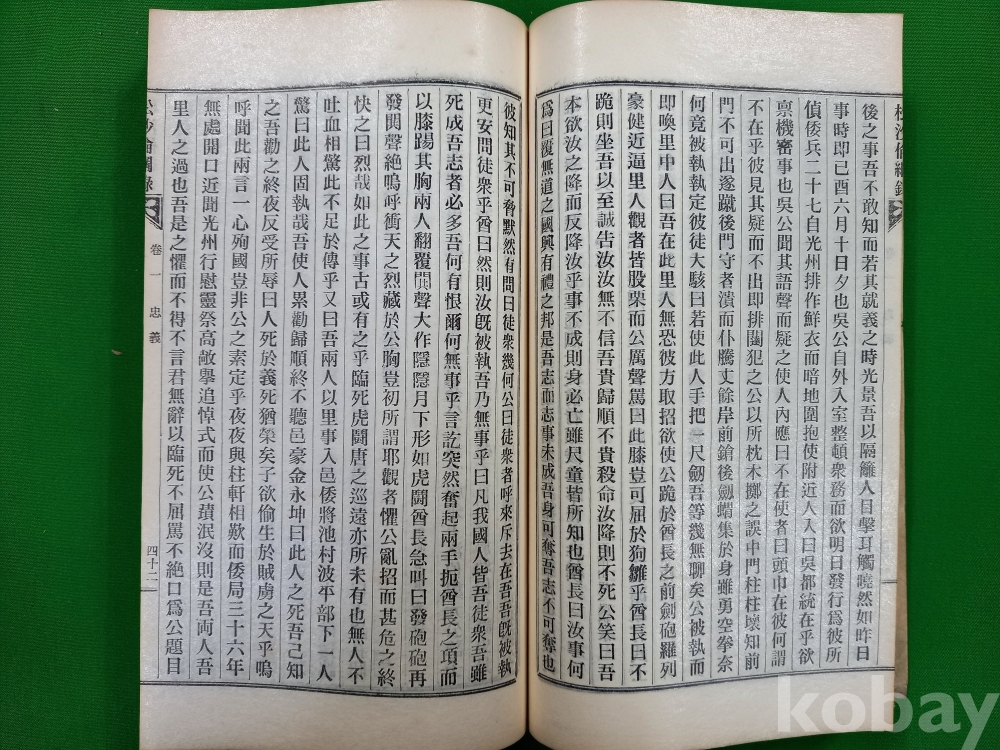 松沙倫綱錄
後之事吾不敢知而若其就義之時光景吾以隔籬人目擊耳觸曉然如昨日
事時即己酉六月十日夕也吳公自外入室整頓衆務而欲明日發行爲彼所
偵倭兵二十七自光州排作鮮衣而暗地圍抱使附近人入曰吳都統在乎欲
禀機密事也吳公聞其語聲而疑之使人內應曰不在使者曰頭巾在彼何謂
不在乎彼見其疑而不出即排闥犯之公以所枕木擲之誤中門柱柱壞知前
門不可出遂蹴後門守者潰而仆騰丈餘岸前鎗後劍蝟集於身雖勇空拳奈
何竟被執執定彼徒大駭曰若使此人手把一尺劒吾等幾無聊矣公被執而
即喚里中人曰吾在此里人無恐彼方取招欲使公跪於酋長之前劍砲羅列
豪健近逼里人觀者皆股栗而公厲聲罵曰此膝豈可屈於狗雛乎酋長曰不
跪則坐吾以至誠告汝汝無不信吾貴歸順不貴殺命汝降則不死公笑曰吾
本欲汝之降而反降汝乎事不成則身必亡雖尺童皆所知也酋長曰汝事何
爲曰覆無道之國興有禮之邦是吾志而志事未成吾身可奪吾志不可奪也
彼知其不可脅默然有問曰徒衆幾何公曰徒衆者呼來斥去在吾吾旣被執
更安問徒衆乎酋曰然則汝旣被執吾乃無事乎曰凡我國人皆吾徒衆吾雖
死成吾志者必多吾何有恨爾何無事乎言訖突然奮起兩手扼酋長之項而
以膝踢其胸兩人翻覆鬨聲大作隱隱月下形如虎鬪酋長急叫曰發砲砲再
發鬨聲絶嗚呼衝天之烈藏於公胸豈初所謂耶觀者懼公亂招而甚危之終
快之曰烈哉如此之事古或有之乎臨死虎鬪唐之巡遠亦所未有也無人不
吐血相驚此不足於傳乎又曰吾兩人以里事入邑倭將池村波平部下一人
驚曰此人固執哉吾使人累勸歸順終不聽邑豪金永坤曰此人之死吾已知
之吾勸之終夜反受所辱曰人死於義死猶榮矣子欲偷生於賊虜之天乎嗚
呼聞此兩言一心殉國豈非公之素定乎夜夜與柱軒相歎而倭局三十六年
無處開口近聞光州行慰靈祭高敞擧追悼式而使公蕡泯沒則是吾両人吾
里人之過也吾是之懼而不得不言君無辭以臨死不屈罵不絶口爲公題目
松沙倫綱錄
卷一 忠義
四十二
kobay